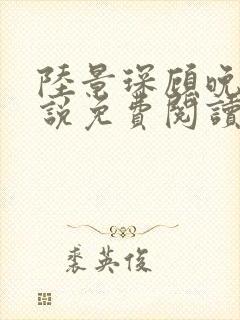 陸景琛顧晚
說免費閱讀
裘英俊